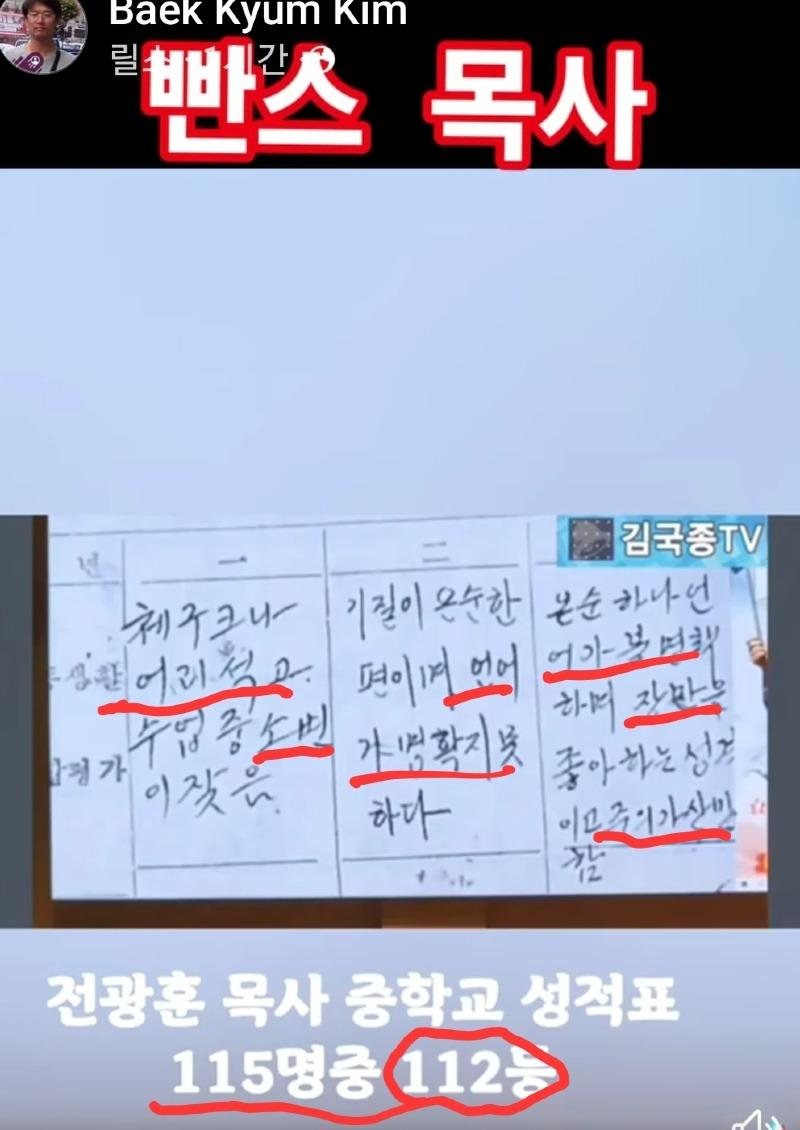 Baek Kyum Kim
릴스 · 1시간
빤스 목사
김국종TV
년
一
二
체구크나
어리석고
수업중소변
이잦음
기질이 온순한
편이며 언어
가명확지못
하다
온순하나언
어가불면책
하며 장난을
좋아하는성격
이고주의가산만
함
평가
전광훈 목사 중학교 성적표
115명중 112등